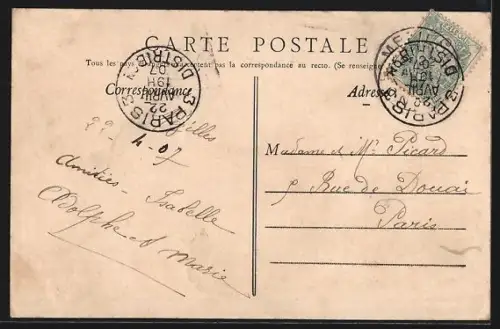 CARTE POSTALE
Tous les pays n'acceptent pas la correspondance au recto. (Se renseigner
Correspondance
Adresse
PARIS 3
DISTRIB
22
AVRIL
19H
07
PARIS 3
DISTRIB
22
AVRIL
07
22-4-07
Madame et Mr Picard
5 Rue de Douai
Paris
Amitiés - Isabelle
Adolphe et Marie